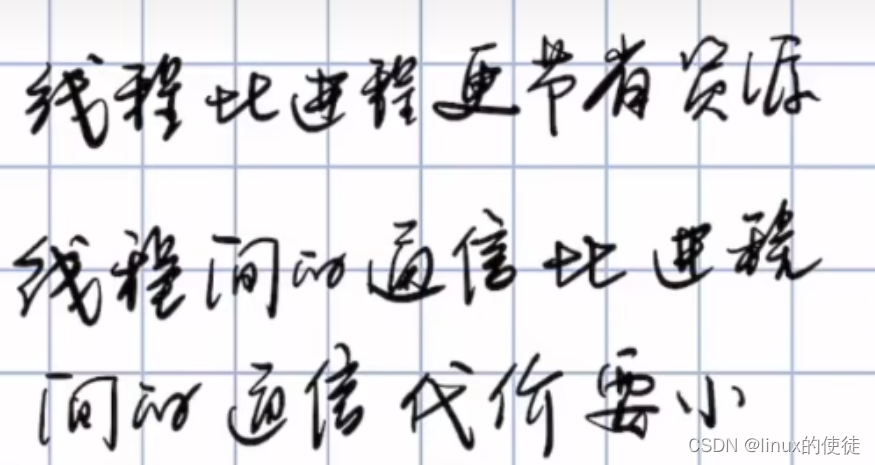 线程比进程更节省资源
线程间的通信比进程
间的通信代价要小
CSDN @linux的使徒